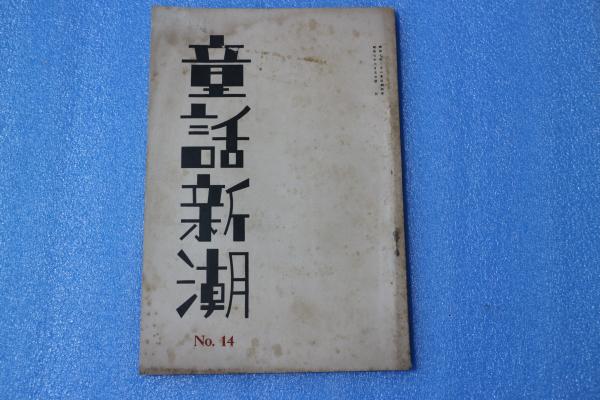 童話新潮
No. 14